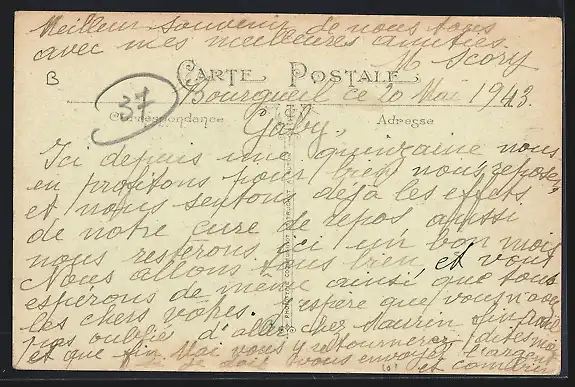 Meilleur souvenir de nous tous
avec mes meilleures amitiés
M Scory
B
CARTE POSTALE
37
Bourgueil ce 20 Mai 1943.
Correspondance
Adresse
Gaby,
Ici depuis une quinzaine nous
en profitons pour bien nous reposer
et nous sentons déjà les effets
de notre cure de repos aussi
nous resterons ici un bon mois
Nous allons tous bien, et vous
espérons de même ainsi que tous
les chers votres. J'espère que vous n'avez
pas oublié d'aller chez Maurin fin
et que fin Mai vous y retournerez, dites moi
vous envoyer l'argent
et combien